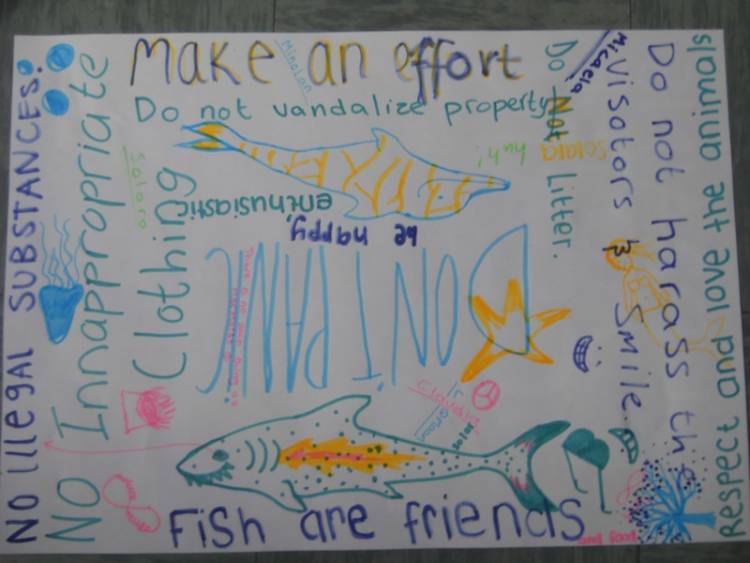 Make an effort
Do not vandalize property
Do Not Litter.
Micaela
Do not harass the
Visotors & Smile.
Respect and love the animals
NO illegal SUBSTANCES!
NO Innappropriate
Clothing
enthusiastic
be happy,
DONT PANIC
Claudia
Solar
Fish are friends
and food